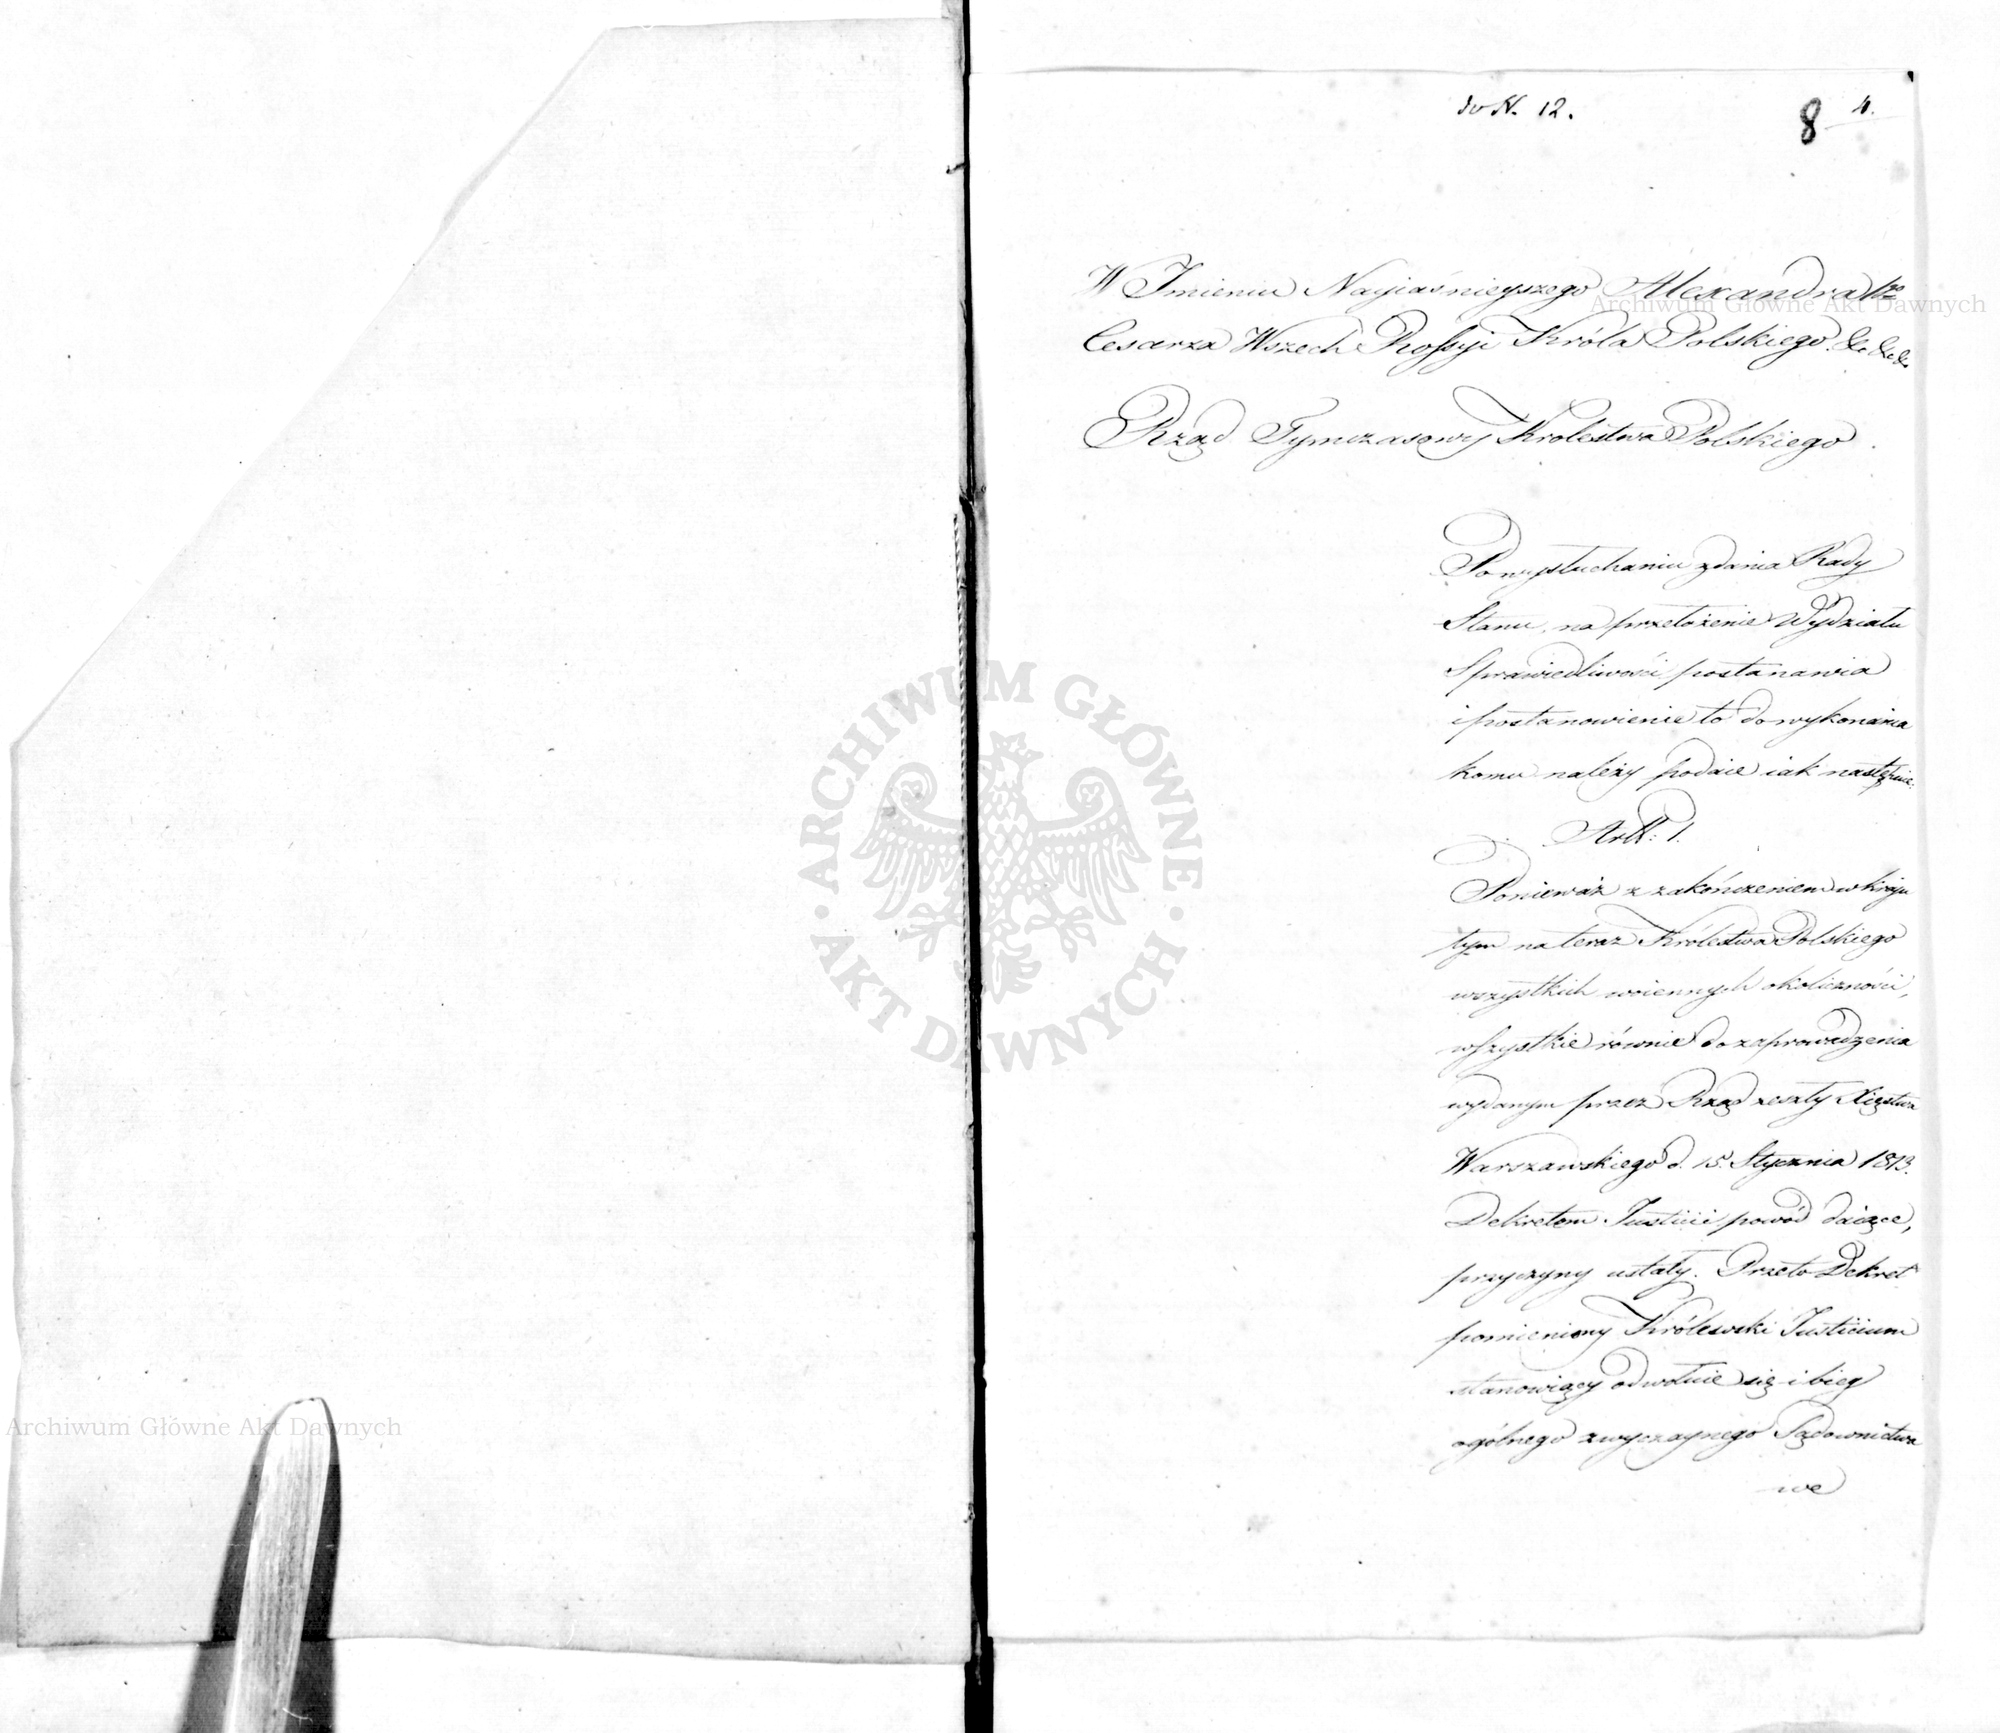 do N. 12.
8 4.
W Imieniu Nayiaśnieyszego Alexandra I<sup>go</sup>
Cesarza Wszech Rossyi Króla Polskiego &c &c &c
Rząd Tymczasowy Królestwa Polskiego.
Po wysłuchaniu zdania Rady
Stanu, na przełożenie Wydziału
Sprawiedliwości postanawia
i postanowienie to do wykonania
komu należy podaie iak następuie:
Artt: 1.
Ponieważ z zakończeniem w kraju
tym na teraz Królestwa Polskiego
wszystkich woiennych okoliczności,
wszystkie równie do zaprowadzenia
wydanym przez Rząd zeszły Xięstwa
Warszawskiego d. 15. Stycznia 1813.
Dekretem Justicii powód daiące,
przyczyny ustały. Przeto Dekret
pomieniony Królewski Justicium
stanowiący odwołuie się i bieg
ogólnego zwyczaynego Sądownictwa
we
Archiwum Główne Akt Dawnych
Archiwum Główne Akt Dawnych
ARCHIWUM GŁÓWNE · AKT DAWNYCH ·